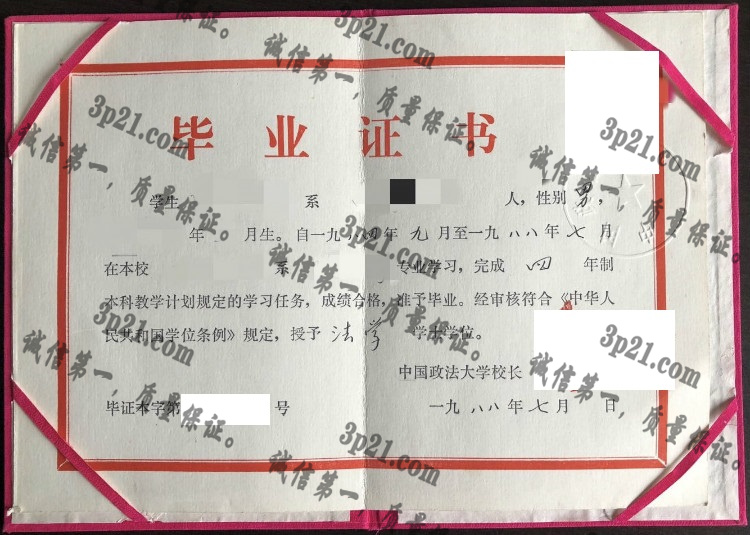 毕业证书
学生 系 人，性别男，
年 月生。自一九八四年九月至一九八八年七月
在本校 系 专业学习，完成四年制
本科教学计划规定的学习任务，成绩合格，准予毕业。经审核符合《中华人
民共和国学位条例》规定，授予法学 学士学位。
中国政法大学校长
毕证本字第 号 一九八八年七月 日
3p21.com
诚信第一，质量保证。
3p21.com
诚信第一，质量保证。
3p21.com
诚信第一，质量保证。
3p21.com
诚信第一，质量保证。
3p21.com
诚信第一，质量保证。
3p21.com
诚信第一，质量保证。